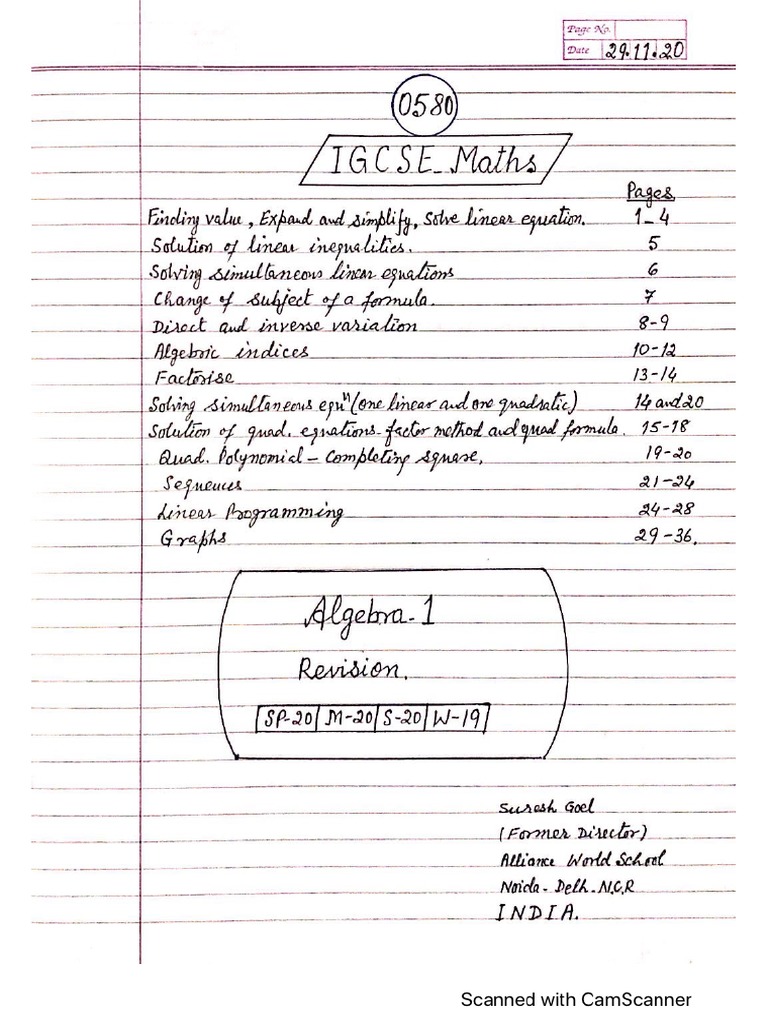 Page No.
Date 29.11.20
0580
IGCSE-Maths
Pages
Finding value, Expand and simplify, Solve linear equation. 1-4
Solution of linear inequalities. 5
Solving simultaneous linear equations 6
Change of subject of a formula. 7
Direct and inverse variation 8-9
Algebric indices 10-12
Factorise 13-14
Solving simultaneous equⁿ (one linear and one quadratic) 14 and 20
Solution of quad. equations-factor method and quad formula. 15-18
Quad. Polynomial - Completing square. 19-20
Sequences 21-24
Linear Programming 24-28
Graphs 29-36.
Algebra-1
Revision.
SP-20 M-20 S-20 W-19
Suresh Goel
(Former Director)
Alliance World School
Noida-Delh-N.C.R
INDIA.
Scanned with CamScanner